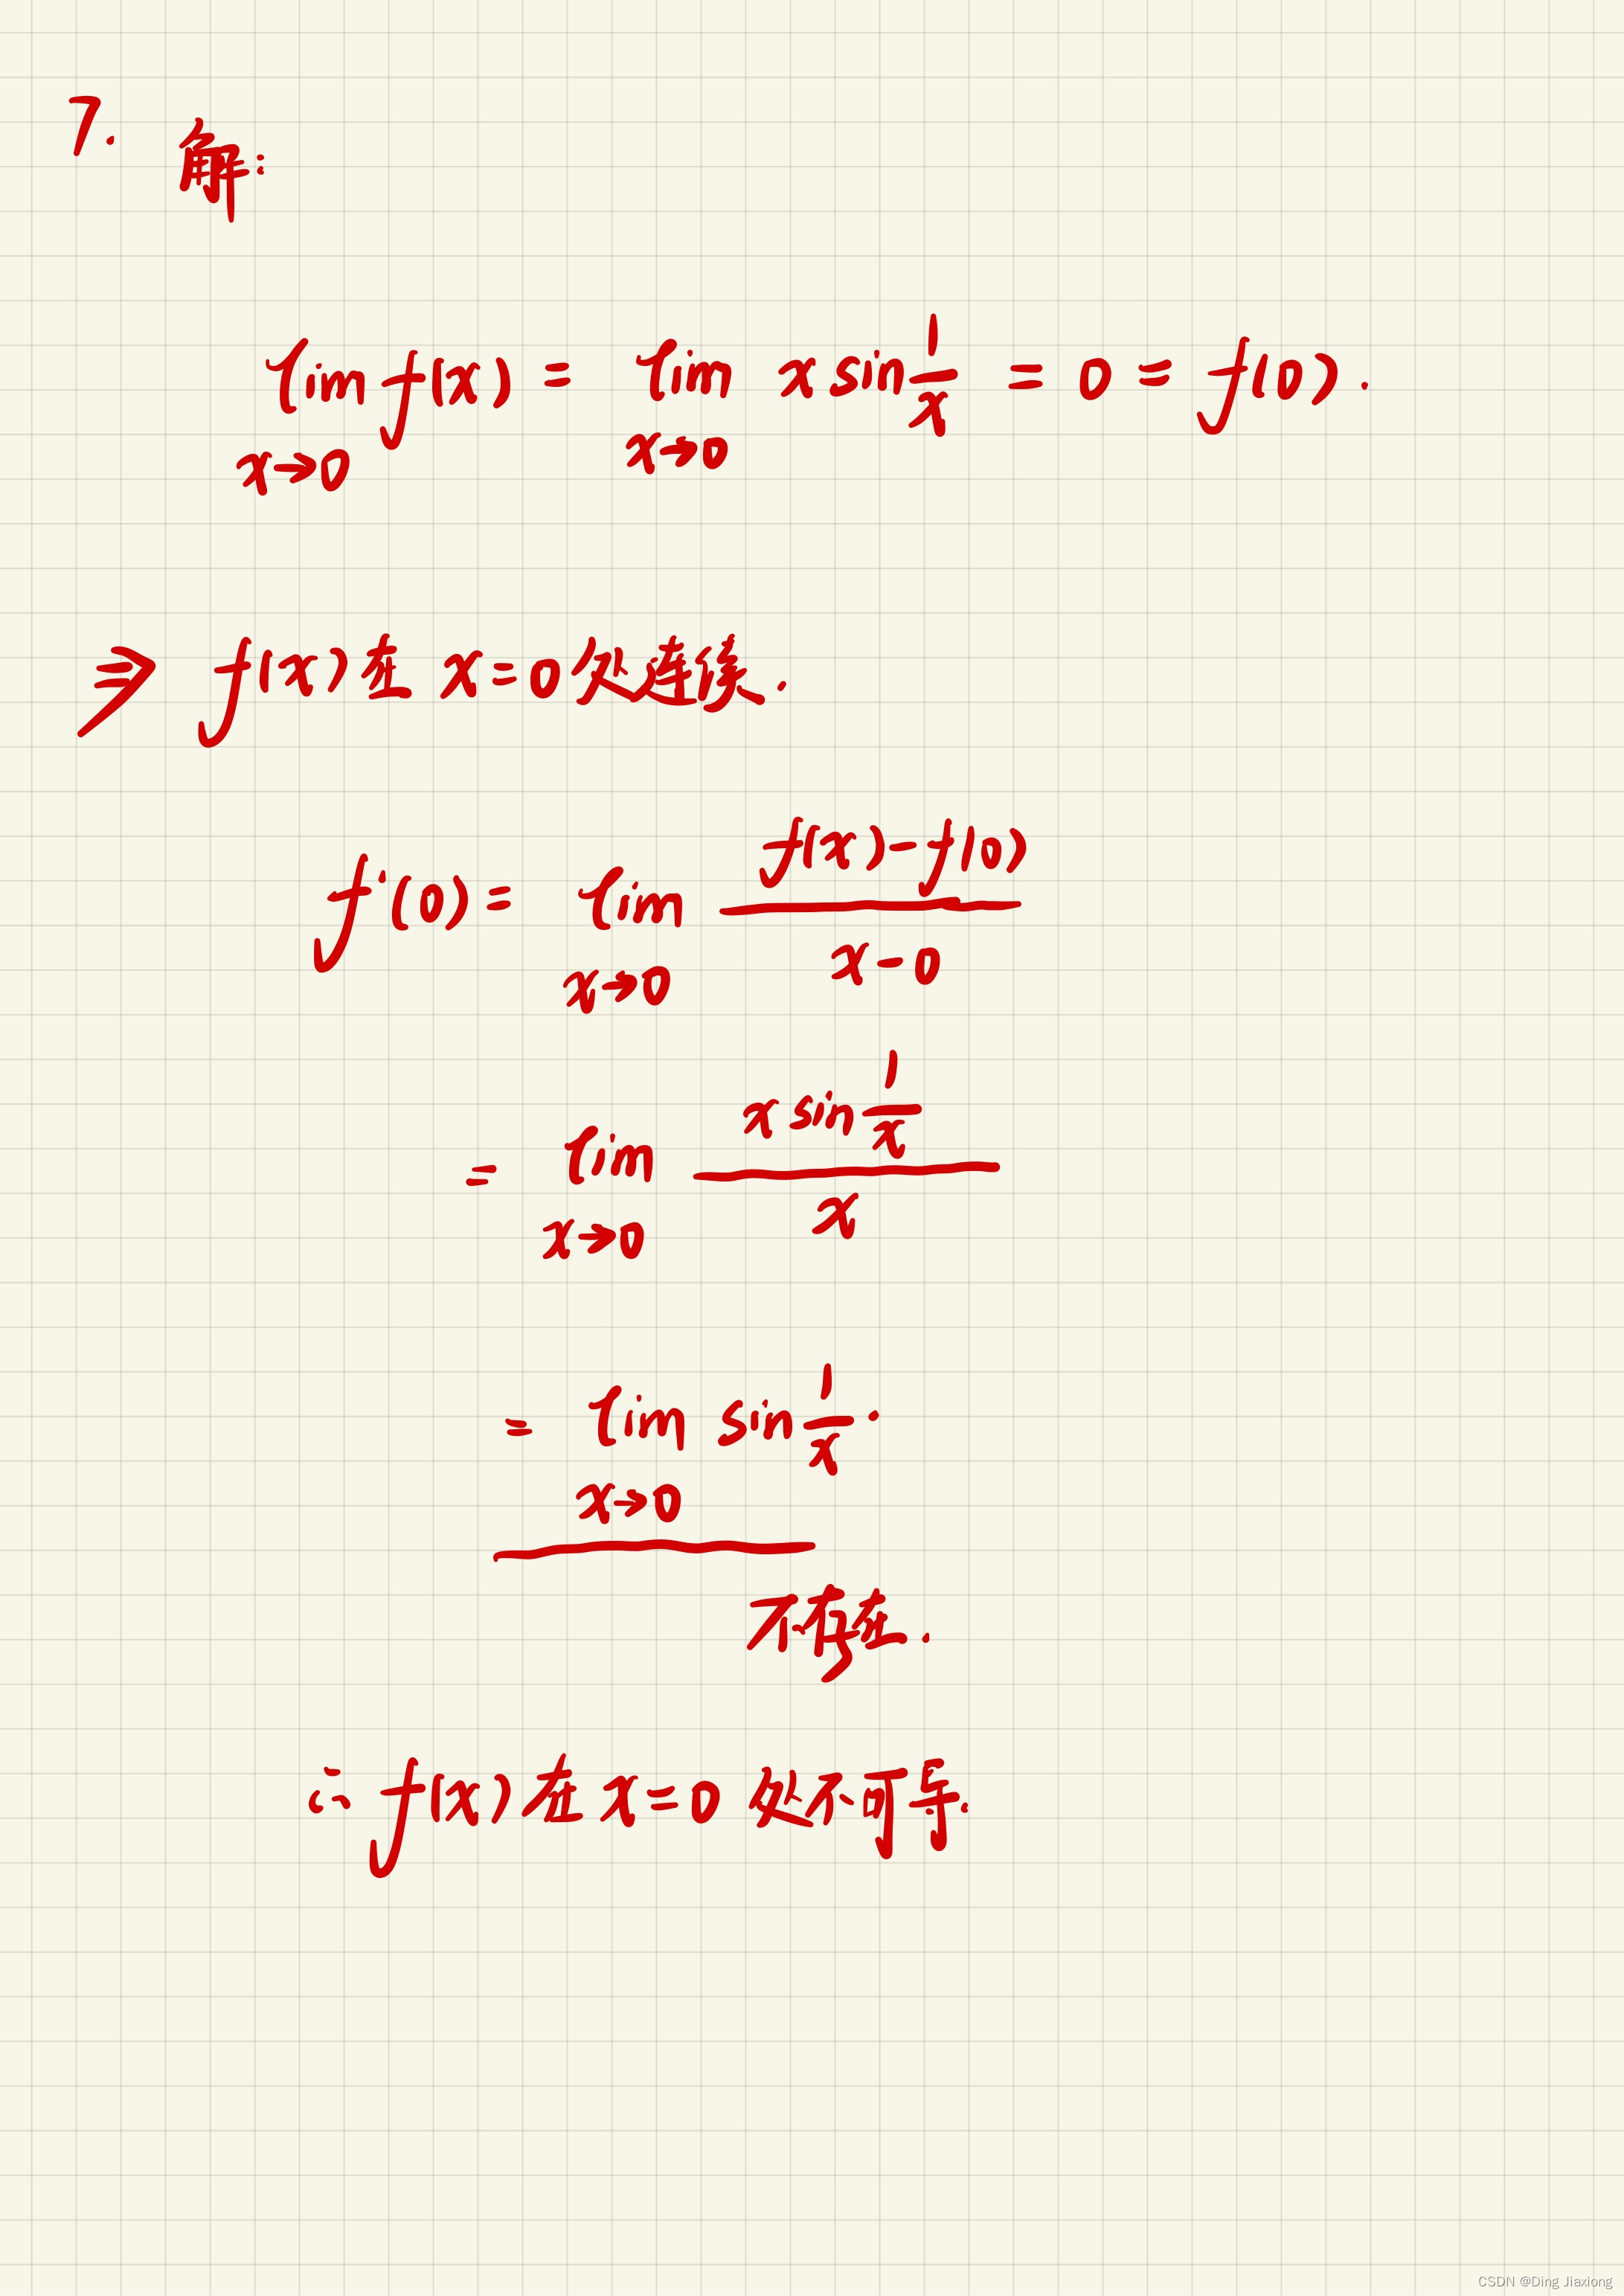 7. 解:
lim x→0 f(x) = lim x→0 x sin 1/x = 0 = f(0).
⇒ f(x)在 x=0处连续.
f'(0) = lim x→0 (f(x)-f(0))/(x-0)
= lim x→0 (x sin 1/x)/x
= lim x→0 sin 1/x.
不存在.
∴ f(x)在 x=0 处不可导.
CSDN @Ding Jiaxiong